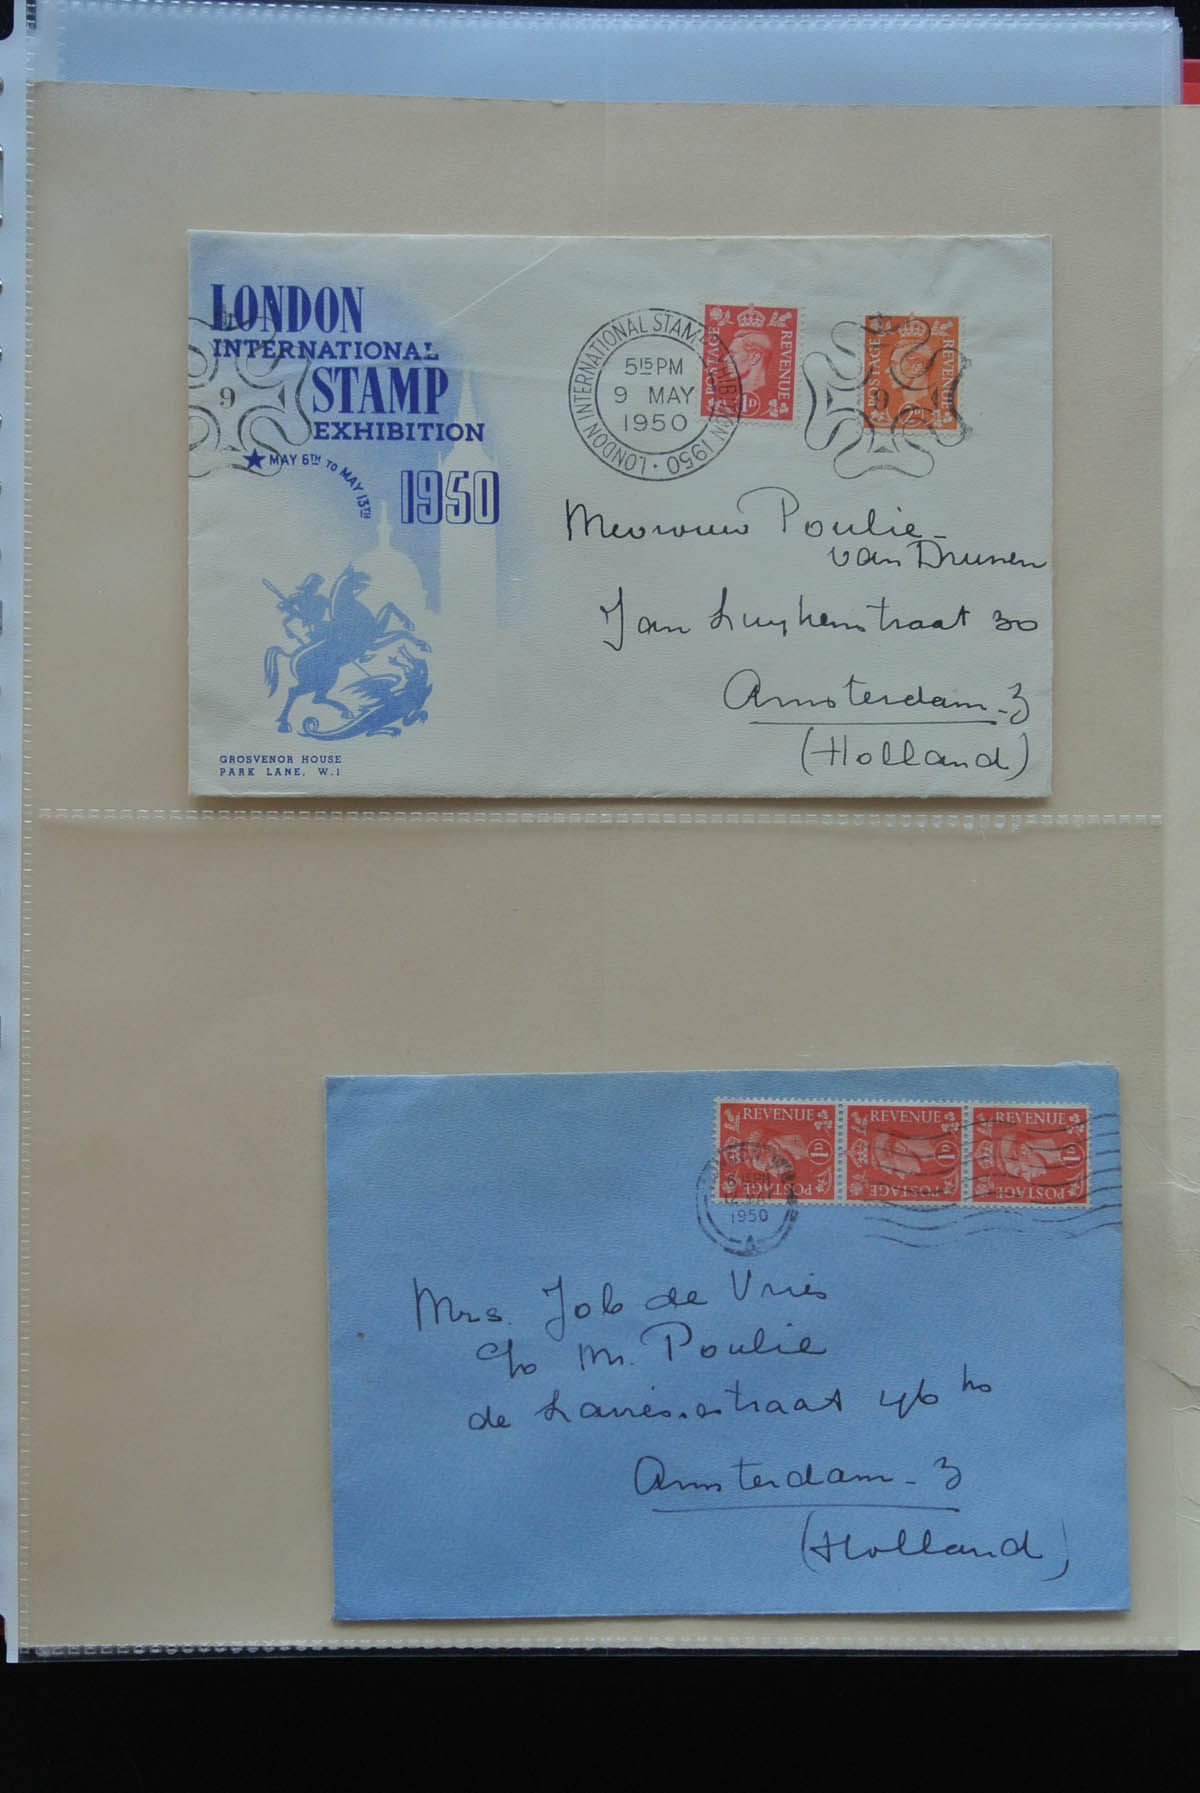 LONDON
INTERNATIONAL
STAMP
EXHIBITION
★ MAY 6TH TO MAY 13TH
1950
GROSVENOR HOUSE
PARK LANE, W.1
9
LONDON INTERNATIONAL STAMP EXHIBITION 1950
5 15 PM
9 MAY
1950
POSTAGE REVENUE
1D
POSTAGE REVENUE
2D
9
Mevrouw Poulie-
van Drunen
Jan Luykenstraat 30
Amsterdam-Z
(Holland)
REVENUE
1D
POSTAGE
REVENUE
1D
POSTAGE
REVENUE
1D
POSTAGE
1950
A
Mrs. Job de Vries
c/o Mr. Poulie
de Lairessestraat
Amsterdam-Z
(Holland)